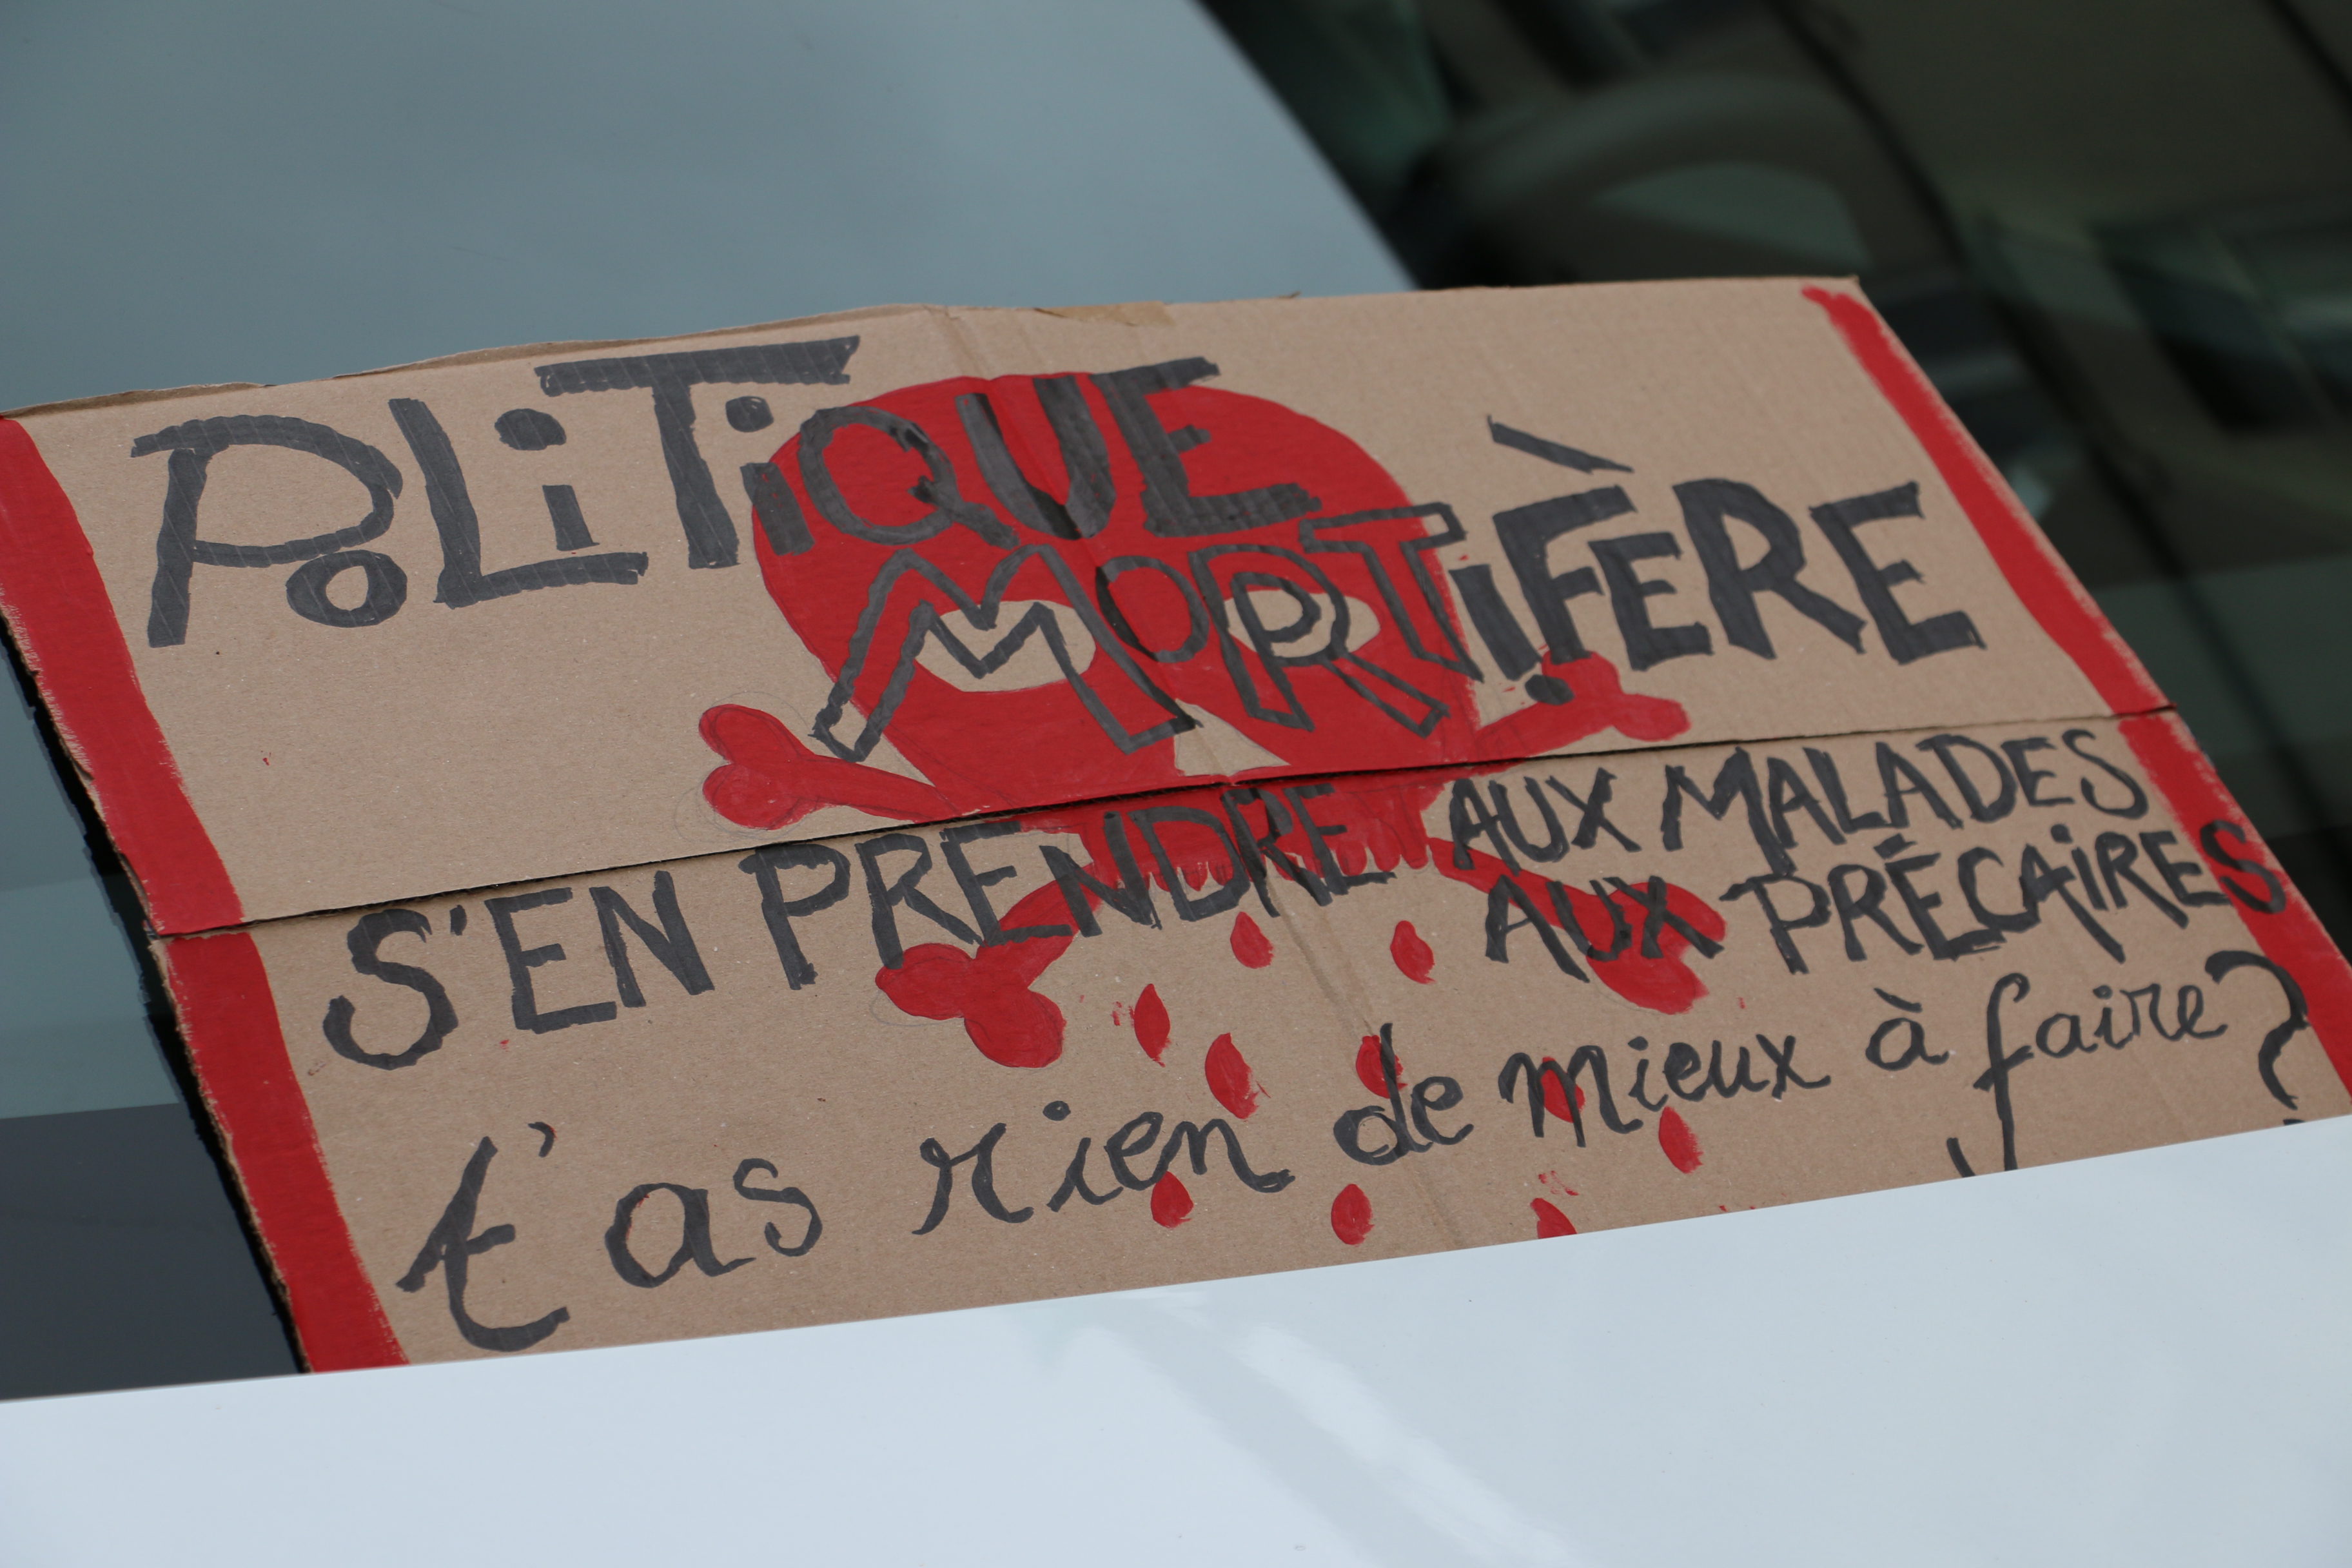 POLiTiQUE
MORTiFÈRE
S'EN PRENDRE AUX MALADES
AUX PRÉCAiRES
t'as rien de mieux à faire?